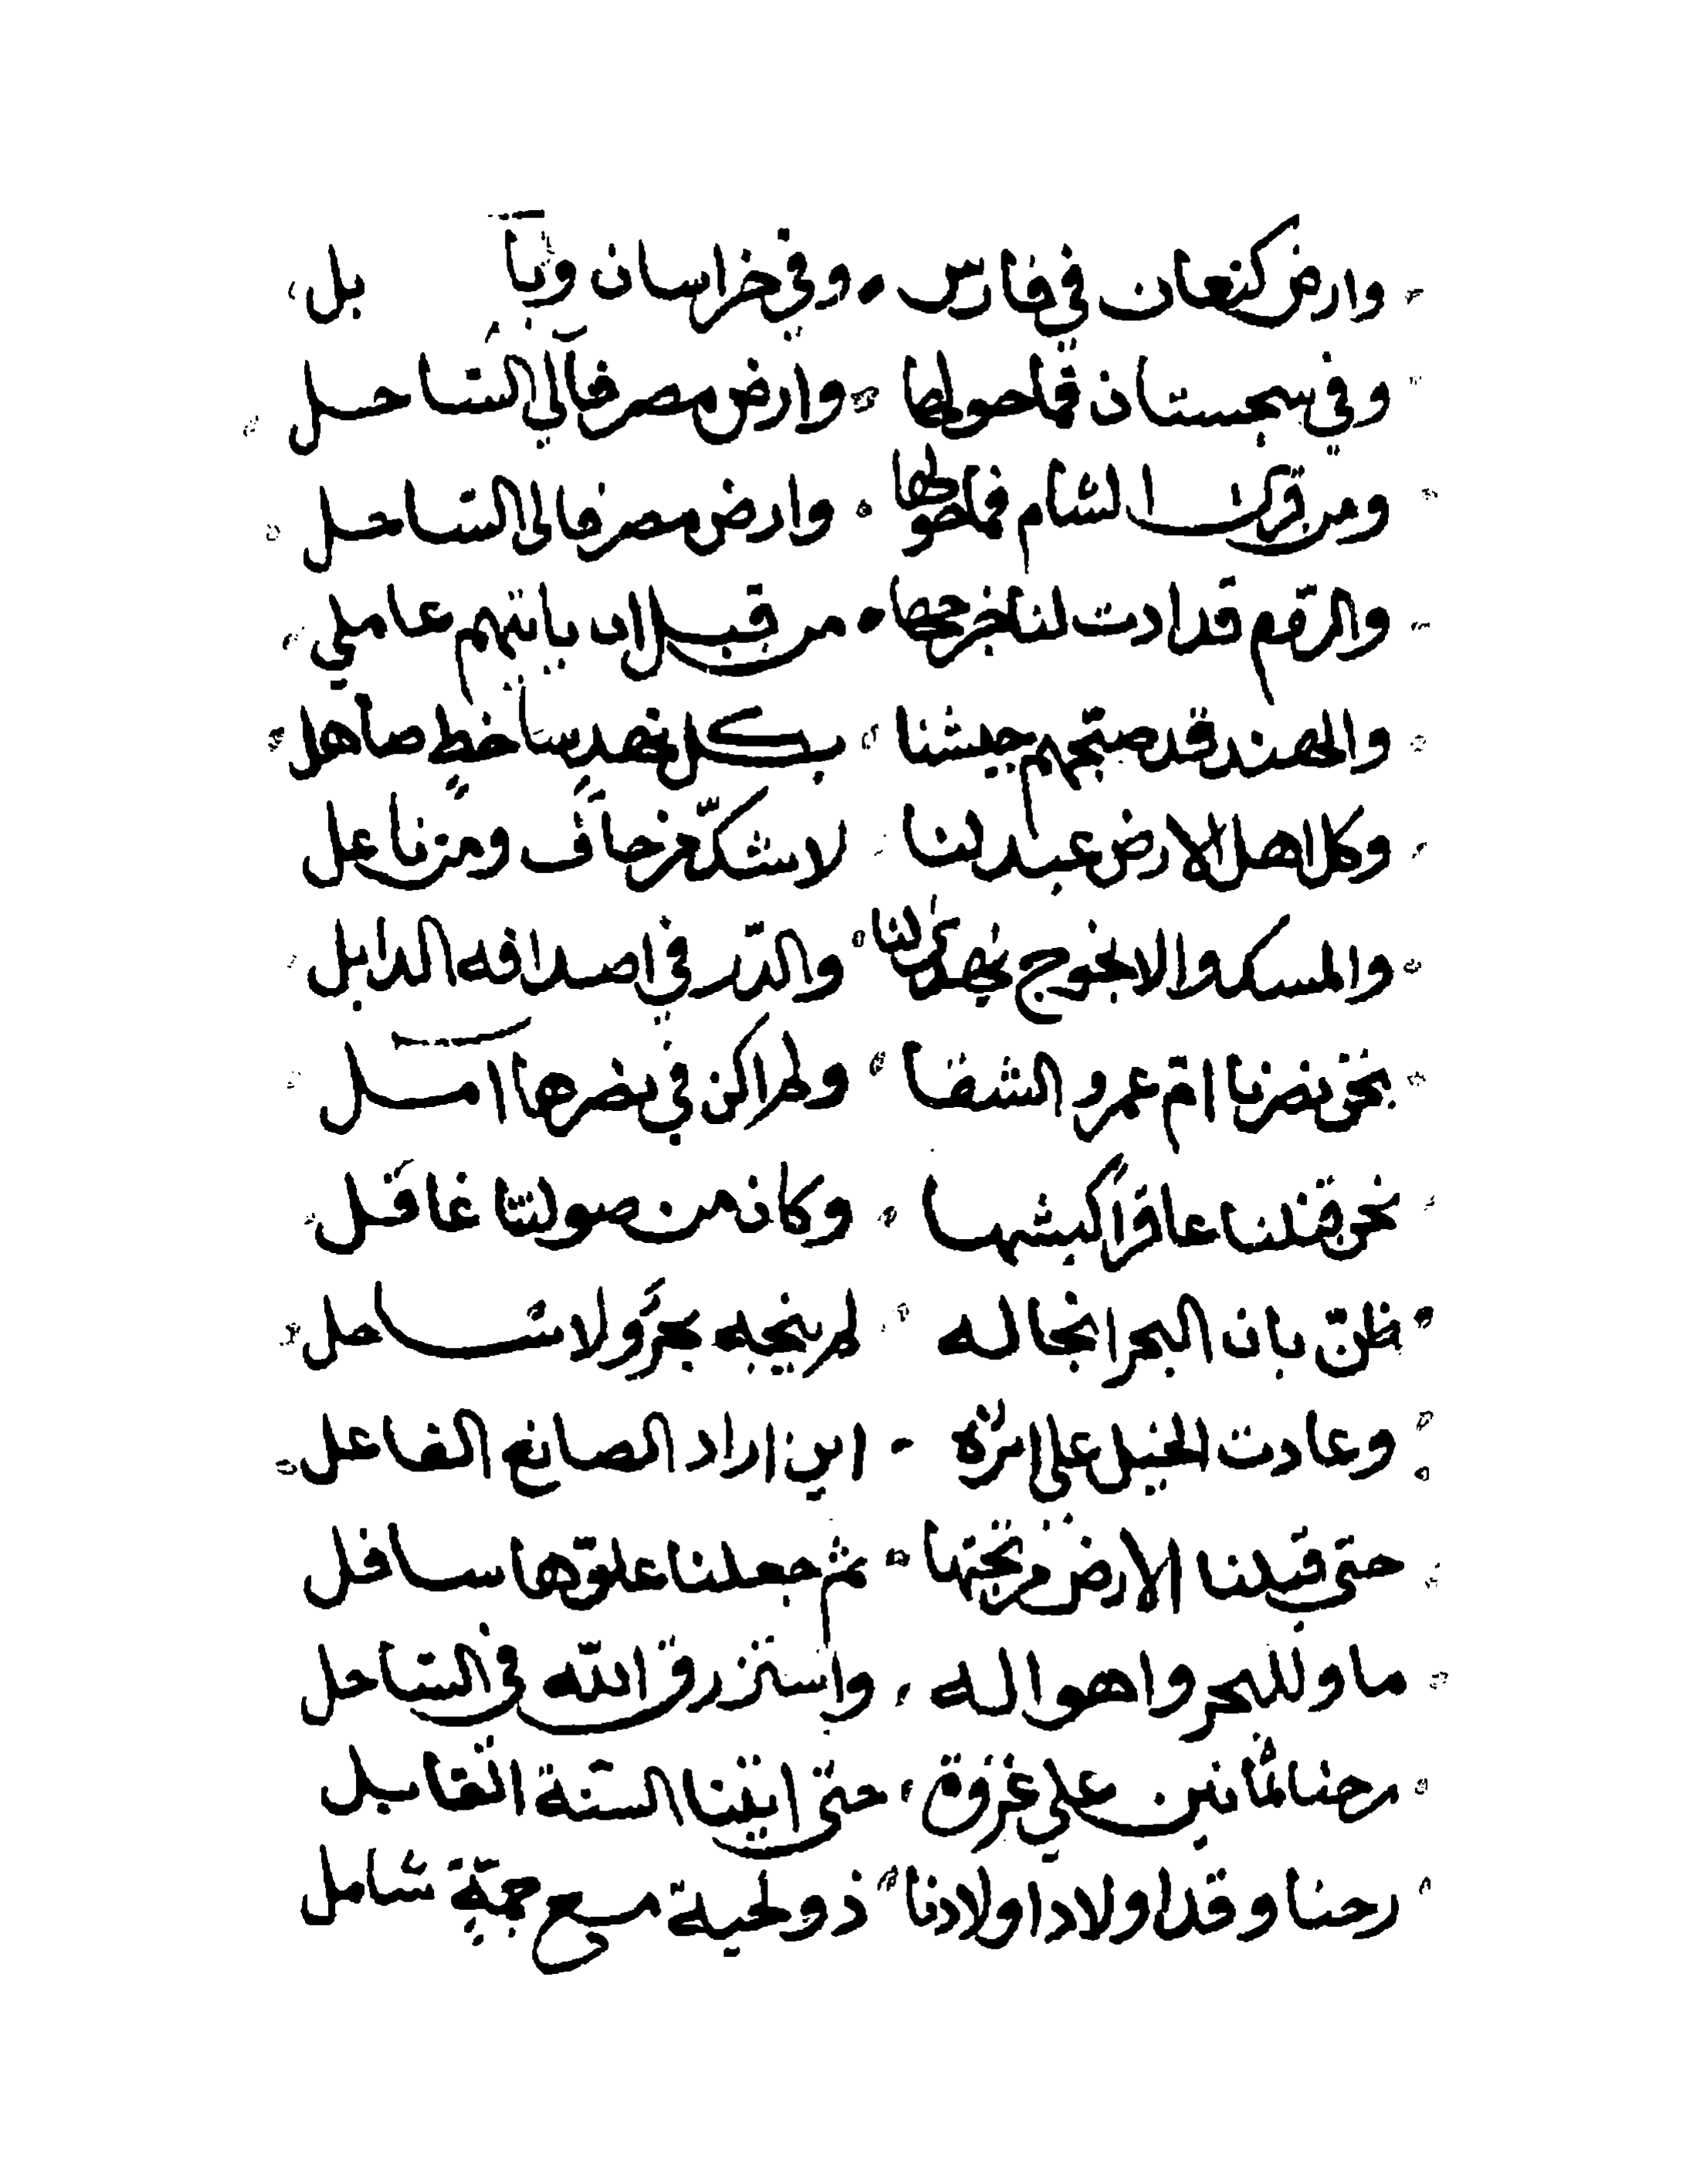 وارض كنعان في فارس • وفي خراسان وبا بل
وفي سجستان فما حولها وارض مصر فالي الساحل
ومن قرى الشام فما حولها وارض مصر فالى الساحل
والرقم قد ادت لنا خرجها • من قبل ان ياتيهم عاملي
والهند قد صبحهم جيشنا بكل نهد ساخط صاهل
وكل اهل الارض عبد لنا لا شك عن حاف ومن ناعل
والمسك والالخوج يهدى لنا والدر في اصدافه الذابل
نحن نصرنا ام عمرو الشفا ولم اكن في نصرها امل
نحن قتلنا عاقرا كبشها وكان من صولتنا غافل
ظن بان البحر انجا له لم ينجه بحر ولا ساحل
وعادت الخيل على اثره - اين اراد الصانع الفاعل
حتى قبلنا الارض من تحتها ثم جعلنا علوها سافل
ما و للبحر واهواله واسترزق الله في الساحل
رحنا ثمانين علي غزوة حتى اتيتنا السنة القابل
رحنا وقد اولاد اولادنا ذو لحية مع جمة شامل